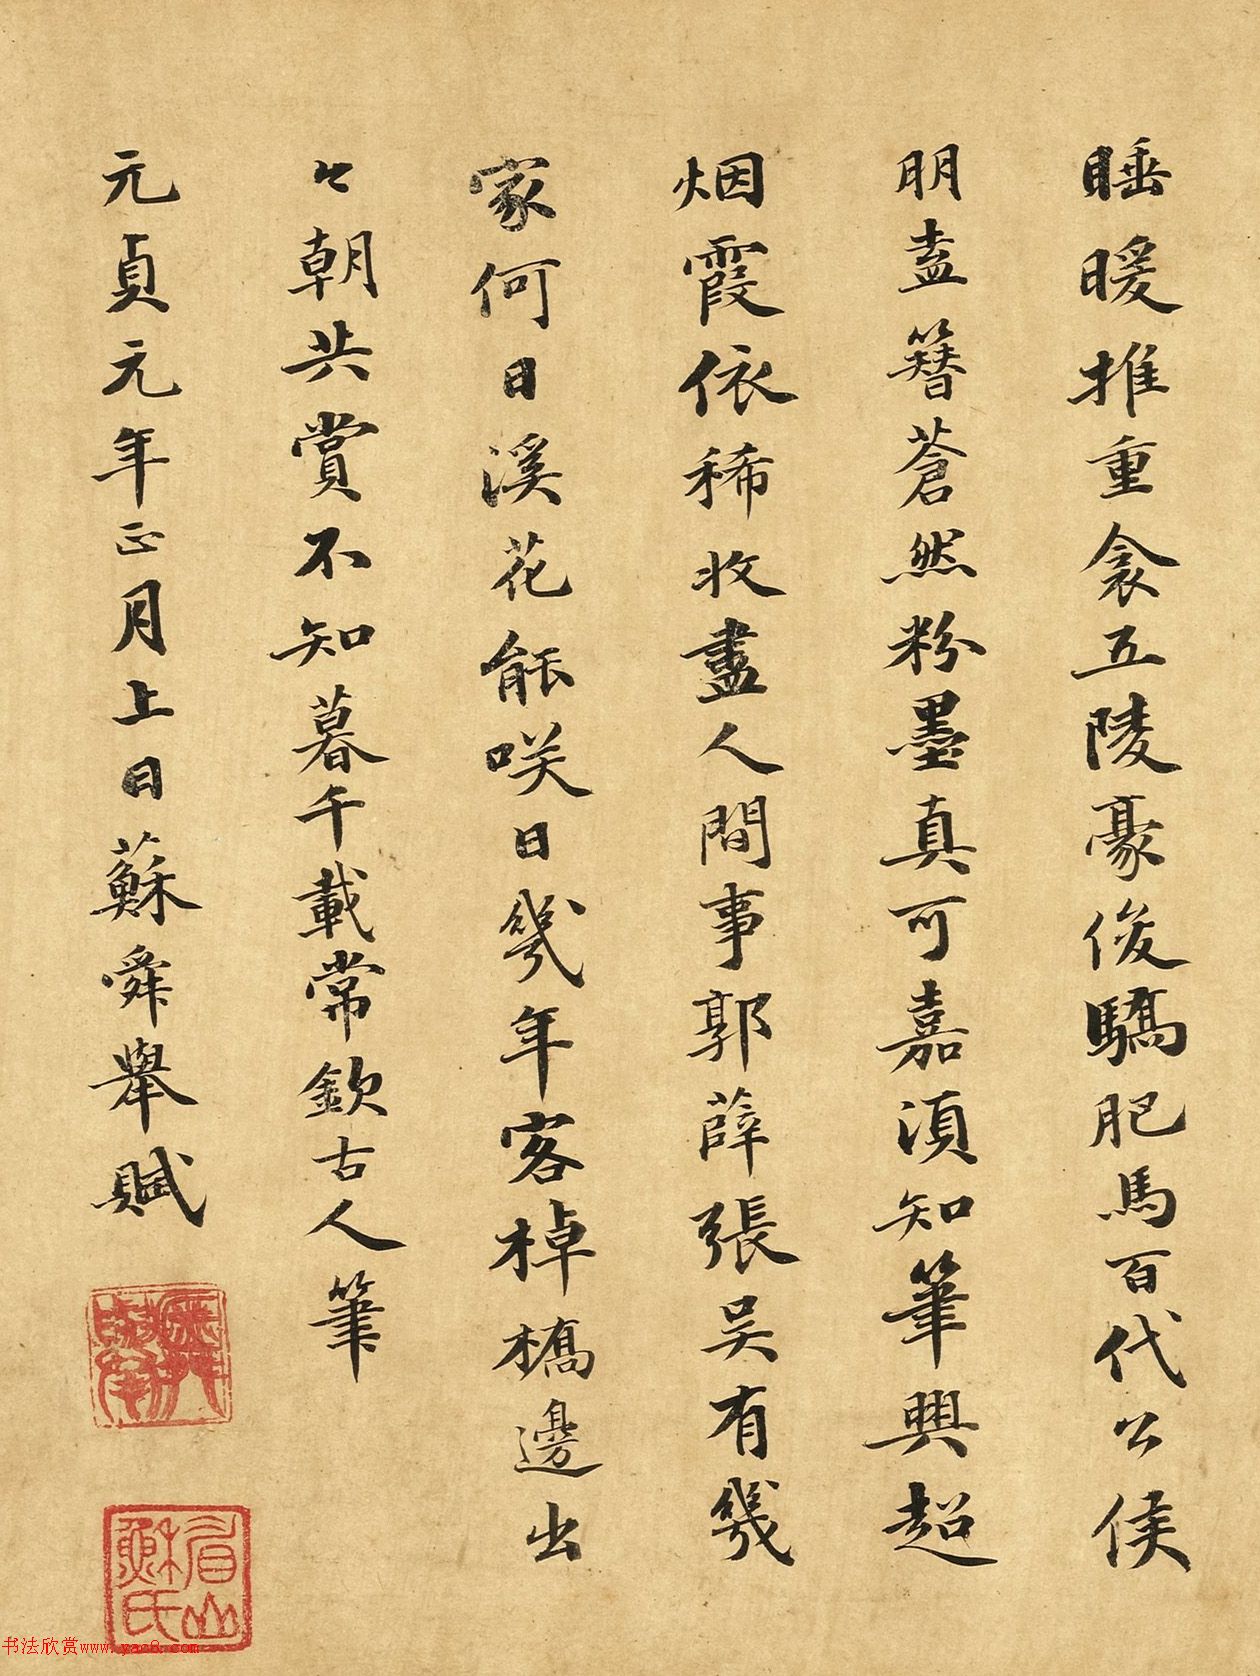 睡暖推重衾五陵豪俊驕肥馬百代公侯
明盍簪蒼然粉墨真可嘉須知筆興超
烟霞依稀收盡人間事郭薛張吴有幾
家何日溪花能咲日幾年客棹橋邊出
々朝共賞不知暮千載常欽古人筆
元貞元年正月上日蘇舜舉賦
眉山蘇氏
书法欣赏www.yac8.com